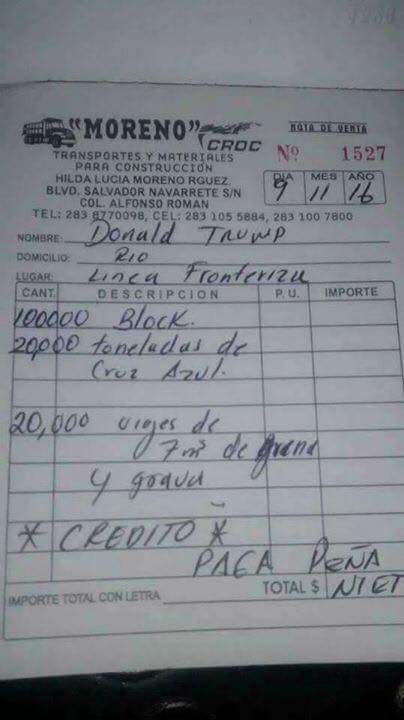 "MORENO"
CROC
NOTA DE VENTA
TRANSPORTES Y MATERIALES
PARA CONSTRUCCIÓN
Nº 1527
HILDA LUCIA MORENO RGUEZ.
BLVD. SALVADOR NAVARRETE S/N
COL. ALFONSO ROMAN
DIA MES AÑO
9 11 16
TEL: 283 8770098, CEL: 283 105 5884, 283 100 7800
NOMBRE: Donald Trump
DOMICILIO: Rio
LUGAR: Linea Fronteriza
CANT. DESCRIPCION P. U. IMPORTE
100000 Block.
20,000 toneladas de
Cruz Azul.
20,000 viajes de
7m³ de arena
y grava
* CREDITO *
PAGA PEÑA
IMPORTE TOTAL CON LETRA TOTAL $ NIET